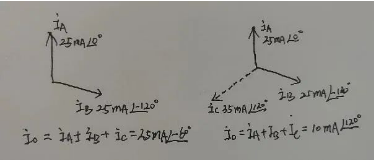 İA
25mA∠0°
İB 25mA∠-120°
İo = İA + İB + İC = 25mA∠-60°
İA
25mA∠0°
İB 25mA∠-120°
İC 35mA∠120°
İo = İA + İB + İC = 10mA∠120°